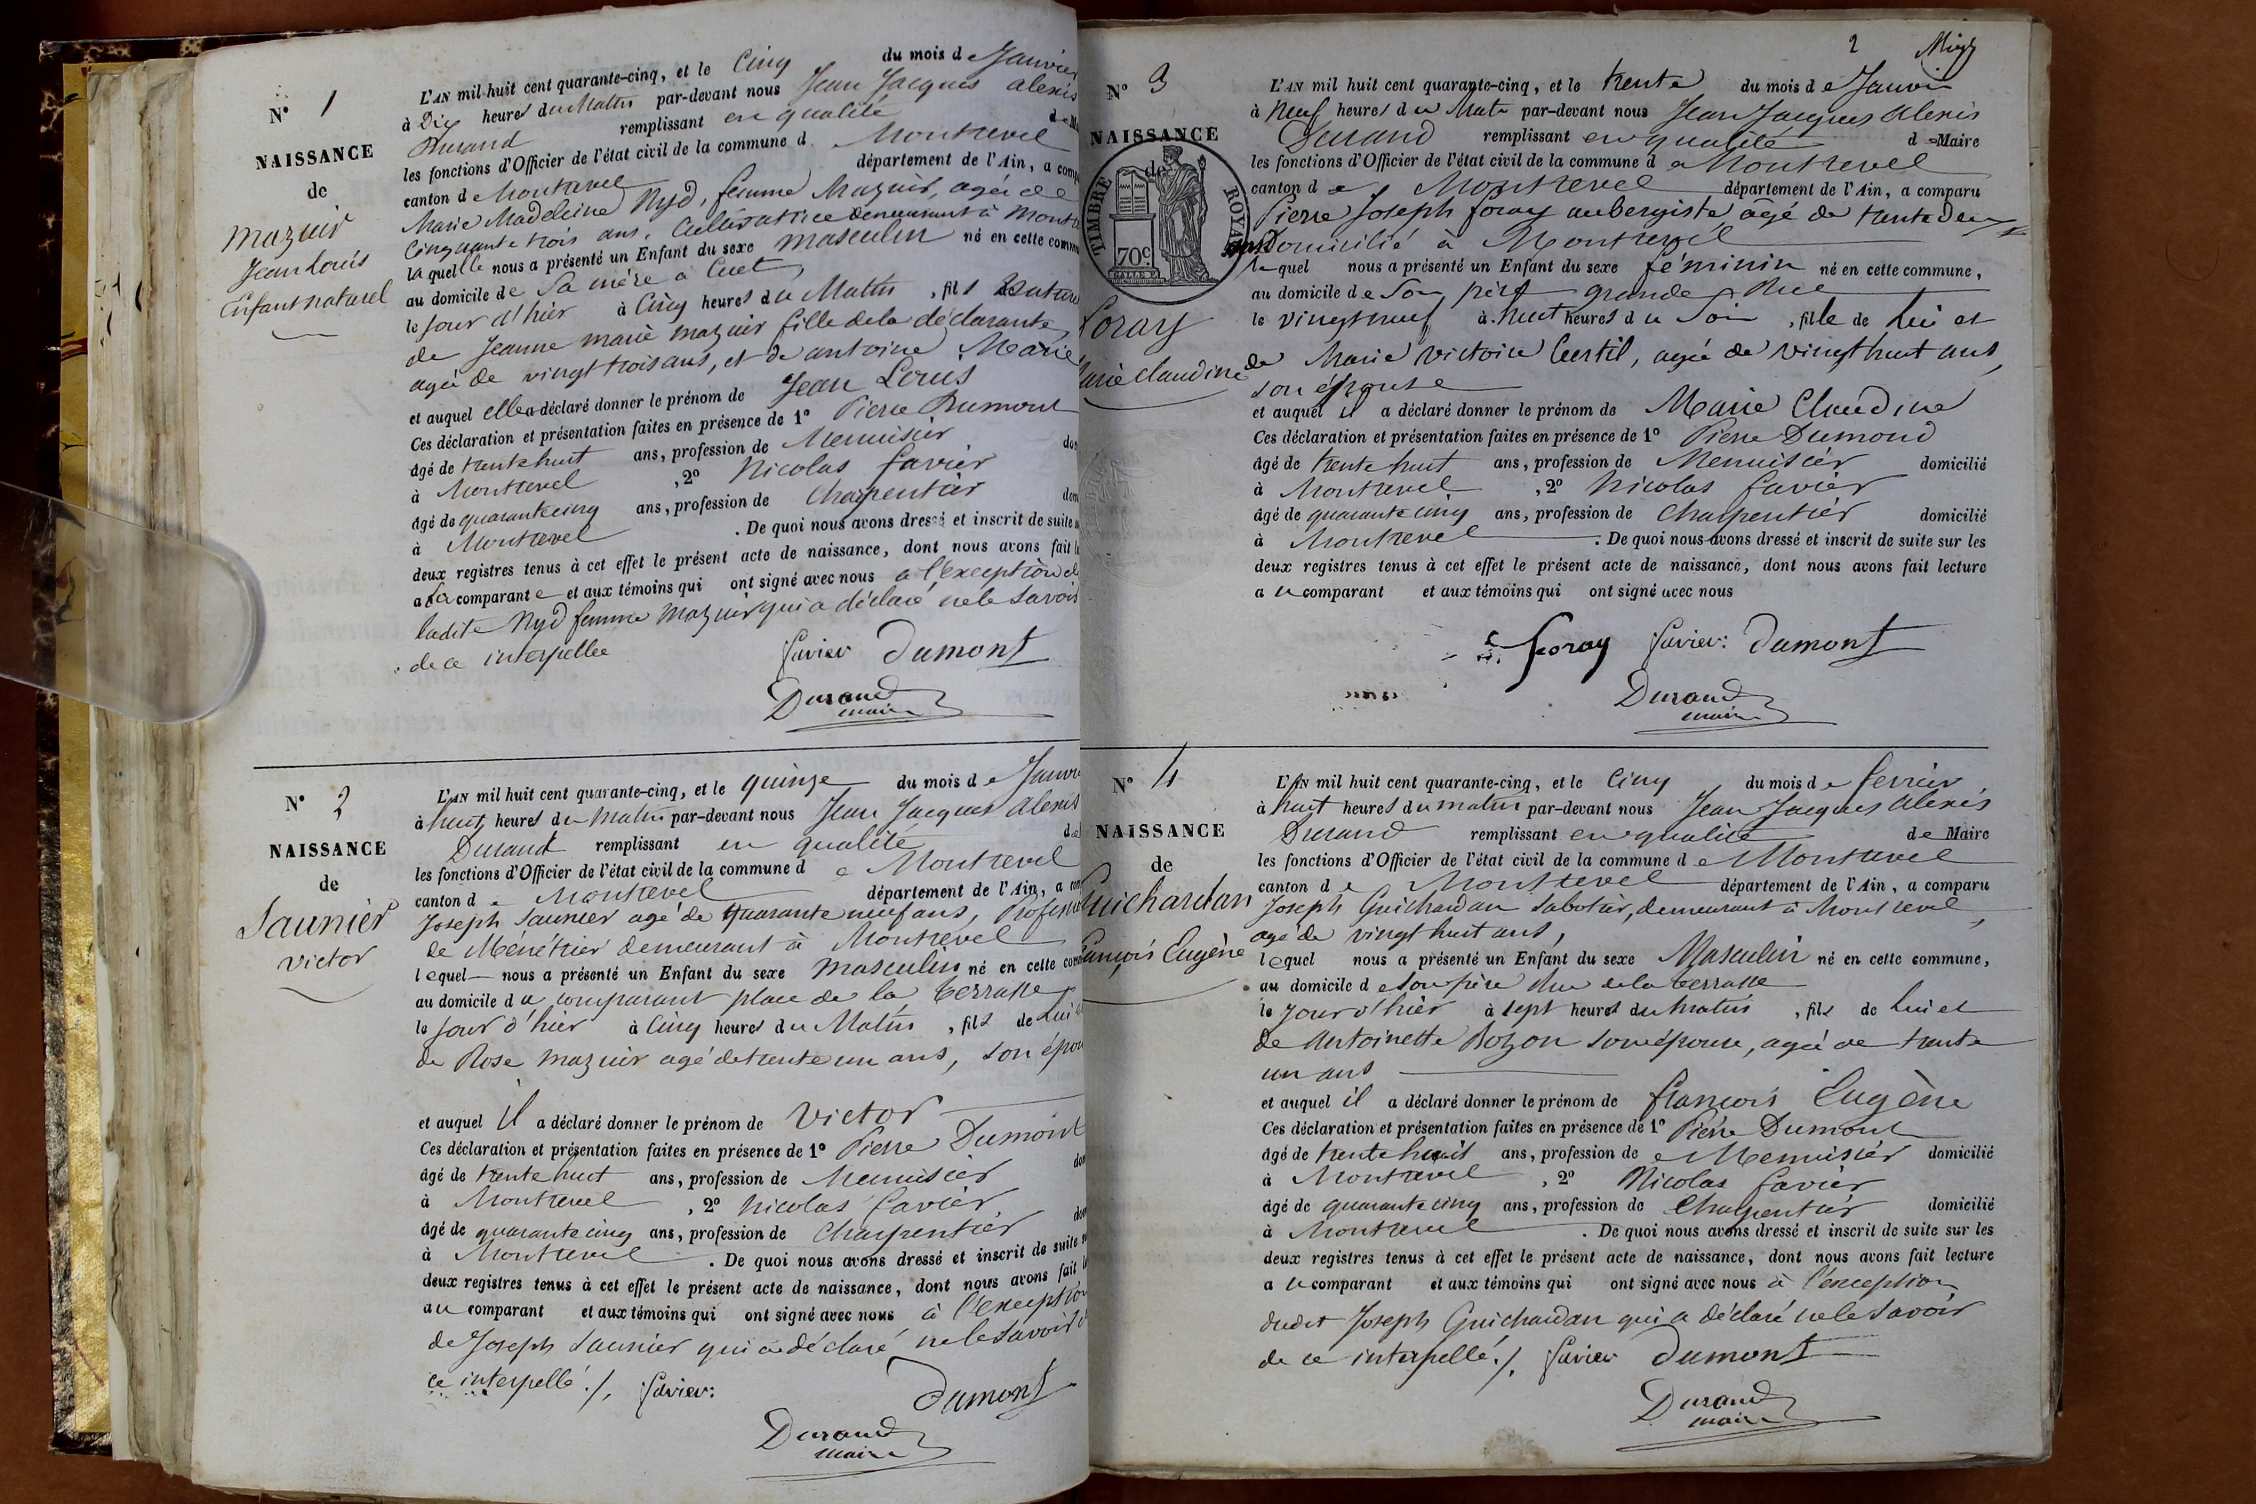 N° 1
NAISSANCE
de
Mazuir
Jean Louis
Enfant naturel
L'AN mil huit cent quarante-cinq, et le Cinq du mois de Janvier
à Dix heures du Matin par-devant nous Jean Jacques Alexis
Durand remplissant en qualité de
les fonctions d'Officier de l'état civil de la commune d Montrevel
canton de Montrevel département de l'Ain, a
Marie Madeleine Nyd, femme Mazuir, agée de
Cinquante trois ans, Cultivatrice demeurant à
laquelle nous a présenté un Enfant du sexe masculin né en cette
au domicile de Sa mère à Cuet,
le jour d'hier à Cinq heures du Matin, fils
de Jeanne marie mazuir fille de la déclarante,
agée de vingt trois ans, et de antoine Marie
et auquel elle a déclaré donner le prénom de Jean Louis
Ces déclaration et présentation faites en présence de 1° Pierre Dumont
âgé de trente huit ans, profession de Menuisier
à Montrevel, 2° Nicolas favier
âgé de quarante cinq ans, profession de Charpentier
à Montrevel. De quoi nous avons dressé et inscrit de suite
deux registres tenus à cet effet le présent acte de naissance, dont nous avons fait
a la comparante et aux témoins qui ont signé avec nous a l'exception de
ladite Nyd femme Mazuir qui a déclaré ne le Savoir
de ce interpellée
favier Dumont
Durand
maire
N° 2
NAISSANCE
de
Saunier
victor
L'AN mil huit cent quarante-cinq, et le quinze du mois de
à huit heures du Matin par-devant nous Jean Jacques Alexis
Durand remplissant en qualité
les fonctions d'Officier de l'état civil de la commune d e Montrevel
canton d e Montrevel département de l'Ain, a
Joseph Saunier agé de quarante neuf ans,
de Ménétrier demeurant à Montrevel
lequel nous a présenté un Enfant du sexe masculin né en cette
au domicile du comparant place de la terrasse
le jour d'hier à Cinq heures du Matin, fils de lui
de Rose mazuir agé de trente un ans, son
et auquel il a déclaré donner le prénom de victor
Ces déclaration et présentation faites en présence de 1° Pierre Dumont
âgé de trente huit ans, profession de Menuisier
à Montrevel, 2° Nicolas favier
âgé de quarante cinq ans, profession de Charpentier
à Montrevel. De quoi nous avons dressé et inscrit de suite
deux registres tenus à cet effet le présent acte de naissance, dont nous avons fait
au comparant et aux témoins qui ont signé avec nous à l'exception
de Joseph Saunier qui a déclaré ne le savoir
ce interpellé ./. favier:
Dumont
Durand
maire
2
N° 3
NAISSANCE
de
TIMBRE ROYAL
70c
foray
Marie Claudine
L'AN mil huit cent quarante-cinq, et le trente du mois de Janvier
à Neuf heures du Matin par-devant nous Jean Jacques Alexis
Durand remplissant en qualité de Maire
les fonctions d'Officier de l'état civil de la commune d e Montrevel
canton d e Montrevel département de l'Ain, a comparu
Pierre Joseph foray aubergiste agé de trente deux
ans Domicilié à Montrevel
lequel nous a présenté un Enfant du sexe féminin né en cette commune,
au domicile de Son père grande Rue
le vingt neuf à huit heures du Soir, fille de lui et
de Marie victoire Curtil, agée de vingt huit ans,
son épouse
et auquel il a déclaré donner le prénom de Marie Claudine
Ces déclaration et présentation faites en présence de 1° Pierre Dumond
âgé de trente huit ans, profession de Menuisier domicilié
à Montrevel, 2° Nicolas favier
âgé de quarante cinq ans, profession de Charpentier domicilié
à Montrevel. De quoi nous avons dressé et inscrit de suite sur les
deux registres tenus à cet effet le présent acte de naissance, dont nous avons fait lecture
au comparant et aux témoins qui ont signé avec nous
foray favier: Dumont
Durand
maire
N° 4
NAISSANCE
de
Guichardan
françois Eugène
L'AN mil huit cent quarante-cinq, et le Cinq du mois de fevrier
à huit heures du matin par-devant nous Jean Jacques Alexis
Durand remplissant en qualité de Maire
les fonctions d'Officier de l'état civil de la commune d e Montrevel
canton d e Montrevel département de l'Ain, a comparu
Joseph Guichardan Sabotier, demeurant à Montrevel,
agé de vingt huit ans,
lequel nous a présenté un Enfant du sexe Masculin né en cette commune,
au domicile de son père Rue de la terrasse
le jour d'hier à sept heures du Matin, fils de lui et
de Antoinette Bozon son épouse, agée de trente
un ans
et auquel il a déclaré donner le prénom de françois Eugène
Ces déclaration et présentation faites en présence de 1° Pierre Dumont
âgé de trente huit ans, profession de Menuisier domicilié
à Montrevel, 2° Nicolas favier
âgé de quarante cinq ans, profession de Charpentier domicilié
à Montrevel. De quoi nous avons dressé et inscrit de suite sur les
deux registres tenus à cet effet le présent acte de naissance, dont nous avons fait lecture
au comparant et aux témoins qui ont signé avec nous à l'exception
dudit Joseph Guichardan qui a déclaré ne le Savoir
de ce interpellé ./. favier Dumont
Durand
maire